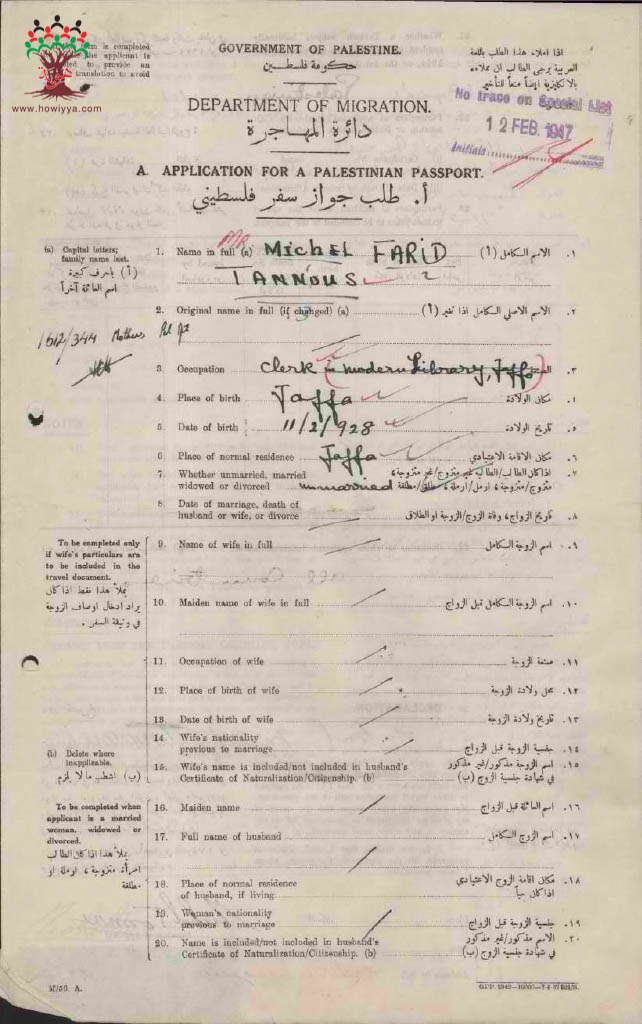 GOVERNMENT OF PALESTINE.
حكومة فلسطين
DEPARTMENT OF MIGRATION.
دائرة المهاجرة
A. APPLICATION FOR A PALESTINIAN PASSPORT.
أ. طلب جواز سفر فلسطيني
is completed
the applicant is
to provide an
translation to avoid
www.howiyya.com
اذا املاء هذا الطلب باللغة
العربية يرجى الطالب ان يملاءه
بالانكليزية ايضاً منعاً للتأخير
No trace on Special List
12 FEB. 1947
Initials
(a) Capital letters;
family name last.
(أ) باحرف كبيرة
اسم العائلة آخراً
1. Name in full (a) Mr Michel FARID الاسم الكامل (أ) ١.
TANNOUS
2. Original name in full (if changed) (a) الاسم الاصلي الكامل اذا تغير (أ) ٢.
1612/344 Mothers
3. Occupation clerk (in modern Library, Jaffa) ٣.
4. Place of birth Jaffa مكان الولادة ٤.
5. Date of birth 11/2/928 تاريخ الولادة ٥.
6. Place of normal residence Jaffa مكان الاقامة الاعتيادي ٦.
7. Whether unmarried, married
widowed or divorced unmarried
اذا كان الطالب/الطالبة غير متزوج/غير متزوجة،
متزوج/متزوجة، ارمل/ارملة، مطلق/مطلقة ٧.
8. Date of marriage, death of
husband or wife, or divorce تاريخ الزواج، وفاة الزوج/الزوجة او الطلاق ٨.
To be completed only
if wife's particulars are
to be included in the
travel document.
يملأ هذا فقط اذا كان
يراد ادخال اوصاف الزوجة
في وثيقة السفر.
9. Name of wife in full اسم الزوجة الكامل ٩.
10. Maiden name of wife in full اسم الزوجة الكامل قبل الزواج ١٠.
11. Occupation of wife صنعة الزوجة ١١.
12. Place of birth of wife محل ولادة الزوجة ١٢.
13. Date of birth of wife تاريخ ولادة الزوجة ١٣.
14. Wife's nationality
previous to marriage جنسية الزوجة قبل الزواج ١٤.
(b) Delete where
inapplicable.
(ب) اشطب ما لا يلزم
15. Wife's name is included/not included in husband's
Certificate of Naturalization/Citizenship. (b)
اسم الزوجة مذكور/غير مذكور
في شهادة جنسية الزوج (ب) ١٥.
To be completed when
applicant is a married
woman, widowed or
divorced.
يملأ هذا اذا كان الطالب
امرأة متزوجة، او ارملة او
مطلقة
16. Maiden name اسم العائلة قبل الزواج ١٦.
17. Full name of husband اسم الزوج الكامل ١٧.
18. Place of normal residence
of husband, if living.
مكان اقامة الزوج الاعتيادي
اذا كان حياً ١٨.
19. Woman's nationality
previous to marriage جنسية الزوجة قبل الزواج ١٩.
20. Name is included/not included in husband's
Certificate of Naturalization/Citizenship. (b)
الاسم مذكور/غير مذكور
في شهادة جنسية الزوج (ب) ٢٠.
M/50. A.